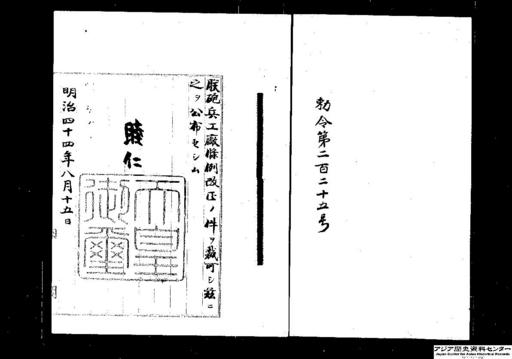 勅令第二百二十五号
朕砲兵工廠條例改正ノ件ヲ裁可シ茲ニ
之ヲ公布セシム
睦仁
天皇御璽
明治四十四年八月十五日
アジア歴史資料センター
Japan Center for Asian Historical Records